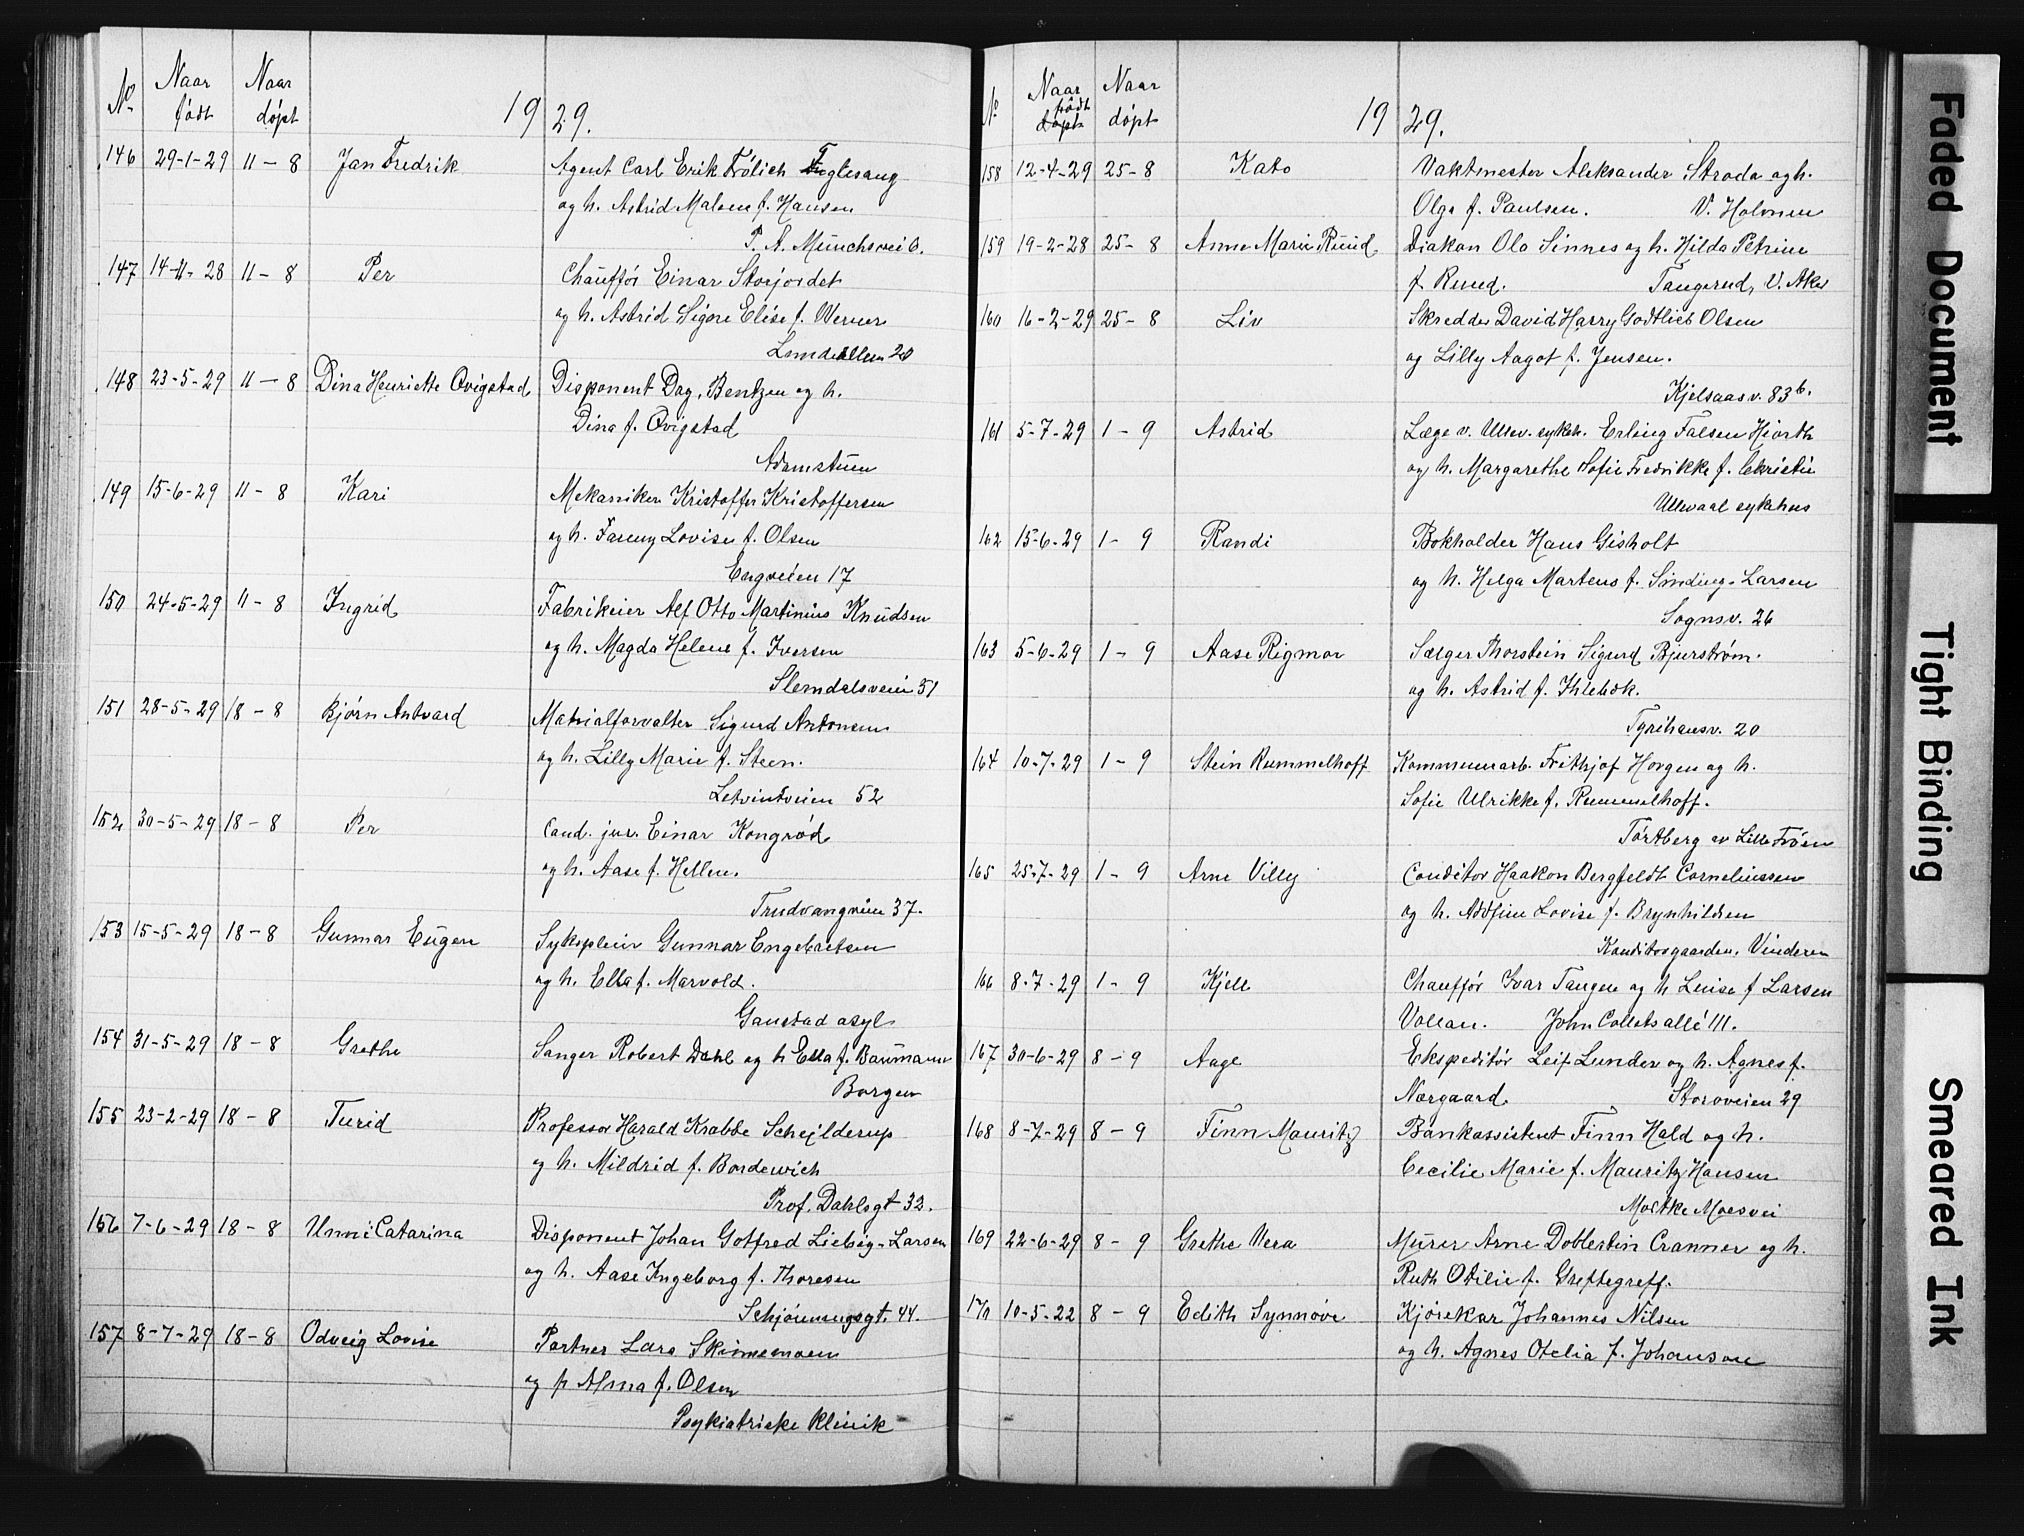 No Naar født Naar døpt 1929.
146 29-1-29 11-8 Jan Fredrik Agent Carl Erik Frölich Fuglesang
og h. Astrid Malene f. Hansen
P. A. Munchsvei 6.
147 14-11-28 11-8 Per Chauffør Einar Storjordet
og h. Astrid Signe Elise f. Werner
Lindealleen 20
148 23-5-29 11-8 Dina Henriette Qvigstad Disponent Dag, Bentzen og h.
Dina f. Qvigstad
Adamstuen
149 15-6-29 11-8 Kari Mekaniker Kristoffer Kristoffersen
og h. Fanny Lovise f. Olsen
Engveien 17
150 24-5-29 11-8 Ingrid Fabrikeier Alf Otto Martinius Knudsen
og h. Magda Helene f. Iversen
Slemdalsveien 51
151 28-5-29 18-8 Bjørn Antvard Matrialforvalter Sigurd Antonsen
og h. Lilly Marie f. Steen.
52
152 30-5-29 18-8 Per Cand. jur. Einar Kongrød
og h. Aase f. Hellen.
Trudvangveien 37.
153 15-5-29 18-8 Gunnar Eugen Sykepleier Gunnar Engebretsen
og h. Ella f. Marvold.
Gaustad asyl
154 31-5-29 18-8 Grethe Sanger Robert Dahl og h Ella f. Baumann
Borgen
155 23-2-29 18-8 Turid Professor Harald Krabbe Schjelderup
og h. Mildrid f. Bordewich
Prof. Dahlsgt 32.
156 7-6-29 18-8 Unni Catarina Disponent Johan Gotfred Liebig-Larsen
og h. Aase Ingeborg f. Thoresen
Schjønningsgt. 44.
157 8-7-29 18-8 Odveig Lovise Portner Lars Skinnemoen
og h Alma f. Olsen
Psykiatriske klinik
No Naar døpt født Naar døpt 1929.
158 12-4-29 25-8 Kato Vaktmester Aleksander Stroda og h.
Olga f. Paulsen. V. Holmen
159 19-2-28 25-8 Anne Marie Ruud Diakon Ola Sinnes og h. Hilda Petrine
f. Ruud. Tangerud, V. Aker
160 16-2-29 25-8 Liv Skredder David Harry Godtlieb Olsen
og Lilly Aagot f. Jensen.
Kjelsaasv. 83b.
161 5-7-29 1-9 Astrid Læge v. Ullev. sykeh. Erling Falsen Hjorth
og h. Margarethe Sofie Fredrikke f. Christie
Ullevaal sykehus
162 15-6-29 1-9 Randi Bokholder Hans Gisholt
og h. Helga Martens f. Sinding-Larsen
Sognsv. 26
163 5-6-29 1-9 Aase Rigmor Sælger Thorstein Sigurd Bjurstrøm.
og h. Astrid f. Ihlebæk.
Tyrihansv. 20
164 10-7-29 1-9 Stein Rummelhoff Kommunearb. Frithjof Horgen og h.
Sofie Ulrikke f. Rummelhoff.
Tørtberg av Lille Frøen
165 25-7-29 1-9 Arne Villy Conditor Haakon Bergfeldt Corneliussen
og h. Adofine Lovise f. Brynhildsen
Konditorgaarden, Vinderen
166 8-7-29 1-9 Kjell Chauffør Ivar Tangen og h Luise f Larsen
Vollan. John Colletsallé 111.
167 30-6-29 8-9 Aage Ekspeditør Leif Lunder og h. Agnes f.
Nærgaard. Storoveien 29
168 8-7-29 8-9 Finn Mauritz Bankassistent Finn Hald og h.
Cecilie Marie f. Mauritz Hansen
Moltke Moesvei
169 22-6-29 8-9 Grethe Vera Murer Arne Doblestin Cranner og h.
Ruth Otilie f. Greftegreff.
170 10-5-22 8-9 Edith Synnøve Kjørekar Johannes Nilsen
og h. Agnes Otelia f. Johanson
Faded Document
Tight Binding
Smeared Ink